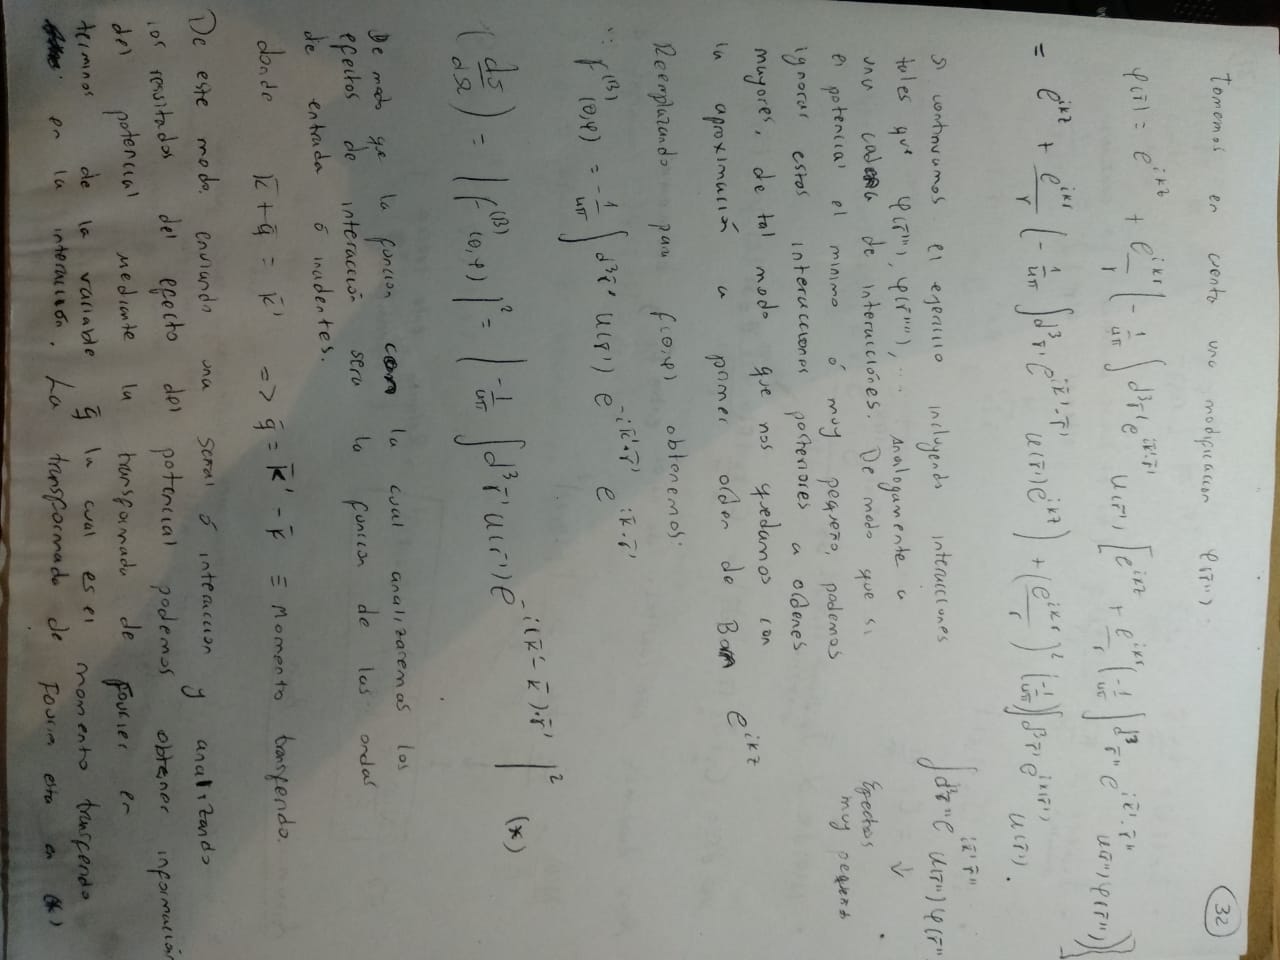 32
Tomemos en cuenta una modificacion φ(r̄''):
φ(r̄) = e^{ikz} + e^{ikr}/r ( -1/4π ∫ d³r̄' e^{ik̄'·r̄'} U(r̄') [ e^{ikz} + e^{ikr}/r ( -1/4π ∫ d³r̄'' e^{ik̄'·r̄''} U(r̄'') φ(r̄'') ) ] )
= e^{ikz} + e^{ikr}/r ( -1/4π ∫ d³r̄' e^{ik̄'·r̄'} U(r̄') e^{ikz} ) + ( e^{ikr}/r )² ( -1/4π ) ∫ d³r̄' e^{ik(r̄')} U(r̄').
∫ d³r̄'' e^{ik̄'r̄''} U(r̄'') φ(r̄''
↓
Efectos
muy pequeños
si continuamos el ejercicio incluyendo interacciones
tales que φ(r̄''), φ(r̄'''), ... Analogamente a
una cadena de interacciones. De modo que si
el potencial el minimo ó muy pequeño, podemos
ignorar estas interacciones posteriores a ordenes
mayores, de tal modo que nos quedamos con
la aproximación a primer orden de Born e^{ikz}
Reemplazando para f(θ,φ) obtenemos:
∴ f^{(B)}(θ,φ) = -1/4π ∫ d³r̄' U(r̄') e^{-ik̄'·r̄'} e^{ik̄·r̄'}
( dσ/dΩ ) = | f^{(B)}(θ,φ) |² = | -1/4π ∫ d³r̄' U(r̄') e^{-i(k̄'-k̄)·r̄'} |² (*)
De modo que la funcion con la cual analizaremos los
efectos de interacción sera la funcion de las ondas
de entrada ó incidentes.
donde k̄ + q̄ = k̄' => q̄ = k̄' - k̄ ≡ Momento transferido.
De este modo, enviando una señal ó interaccion y analizando
los resultados del efecto del potencial podemos obtener información
del potencial mediante la transformada de Fourier en
terminos de la variable q̄ la cual es el momento transferido
en la interacción. La transformada de Fourier esta en (*)